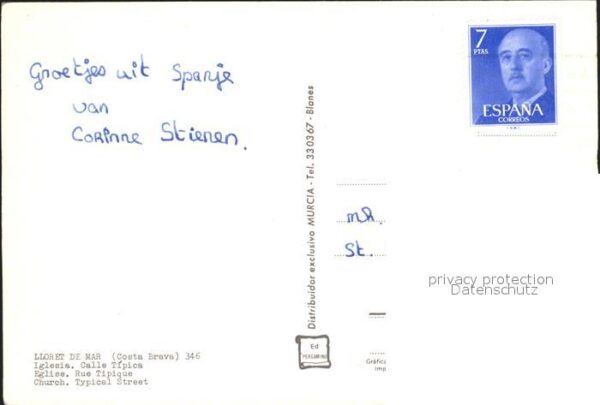 Groetjes uit Spanje
van
Corinne Stienen.
7
PTAS
ESPAÑA
CORREOS
Distribuidor exclusivo MURCIA - Tel. 330367 - Blanes
mh.
St.
privacy protection
Datenschutz
Ed
PERGAMINO
Gráfic
Imp
LLORET DE MAR (Costa Brava) 346
Iglesia. Calle Típica
Eglise. Rue Tipique
Church. Typical Street